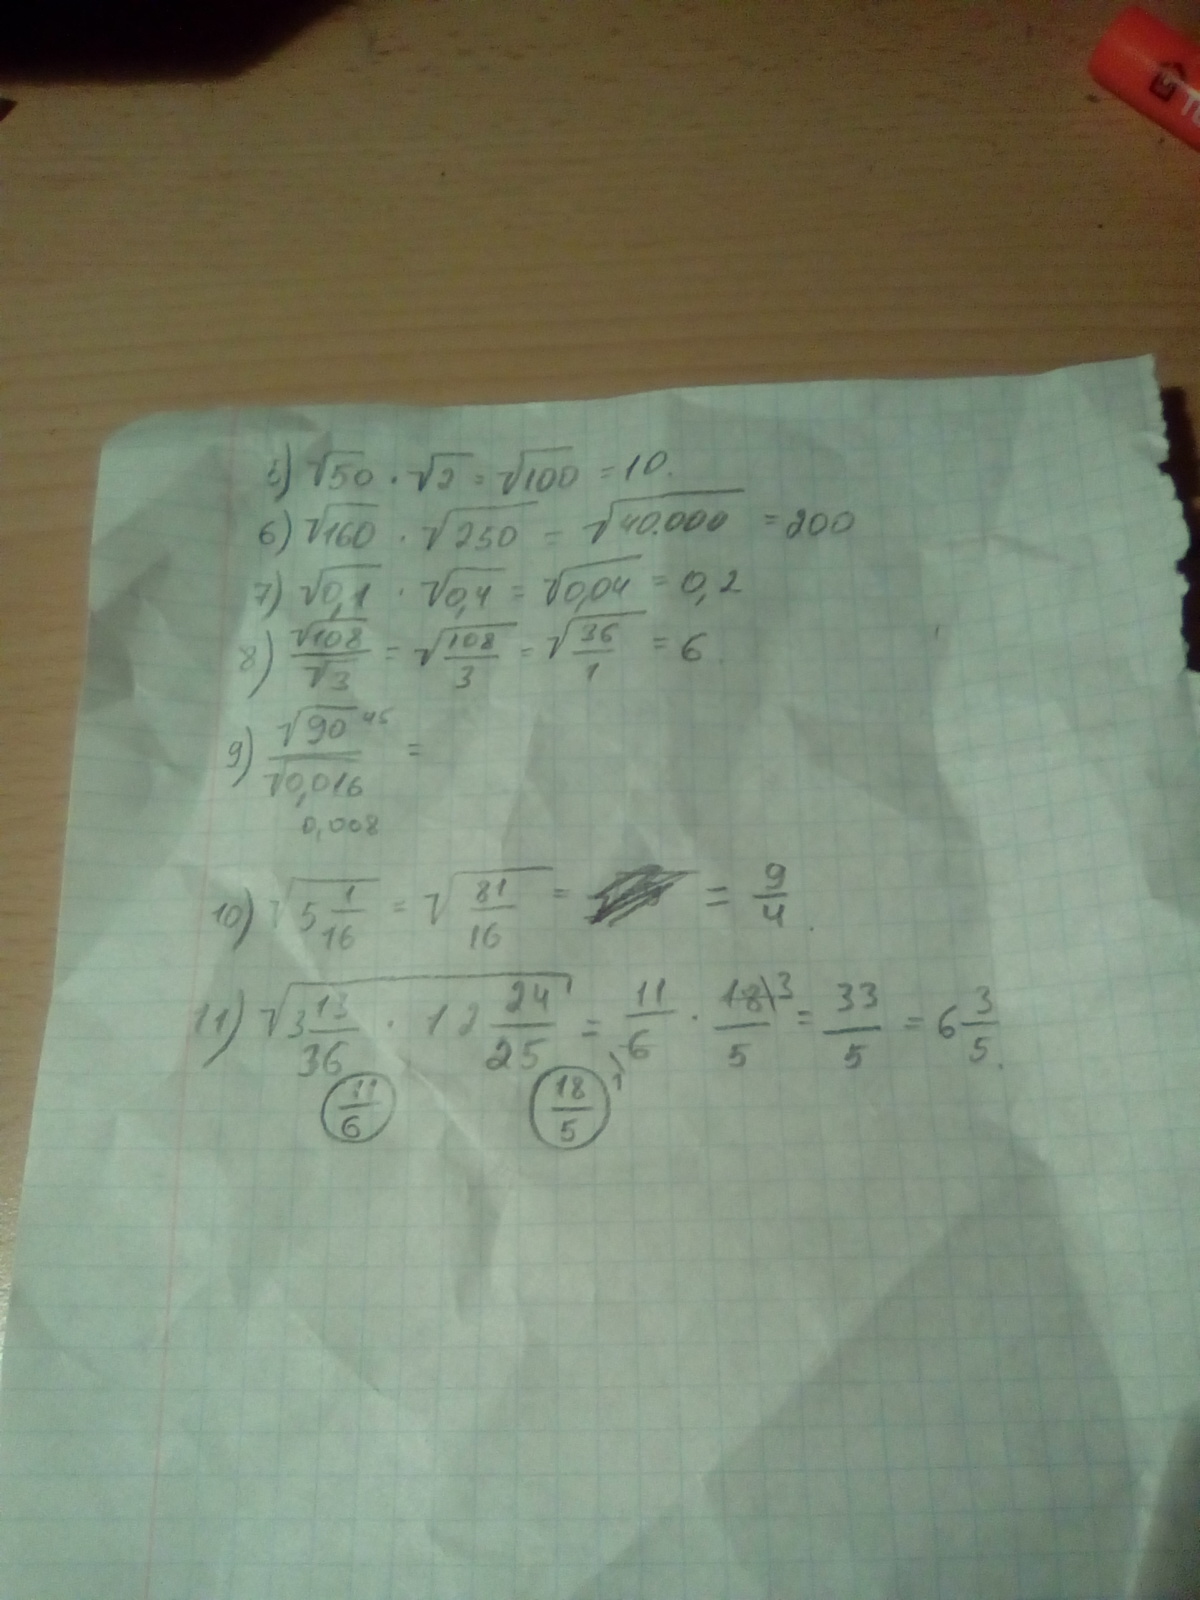 5) √50 · √2 = √100 = 10.
6) √160 · √250 = √40.000 = 200
7) √0,1 · √0,4 = √0,04 = 0,2
8) √108/√3 = √108/3 = √36/1 = 6
9) √90 45/√0,016 =
0,008
10) √5 1/16 = √81/16 = = 9/4.
11) √3 13/36 · 12 24/25 = 11/6 · 18\3/5 = 33/5 = 6 3/5.
11/6 18/5 1